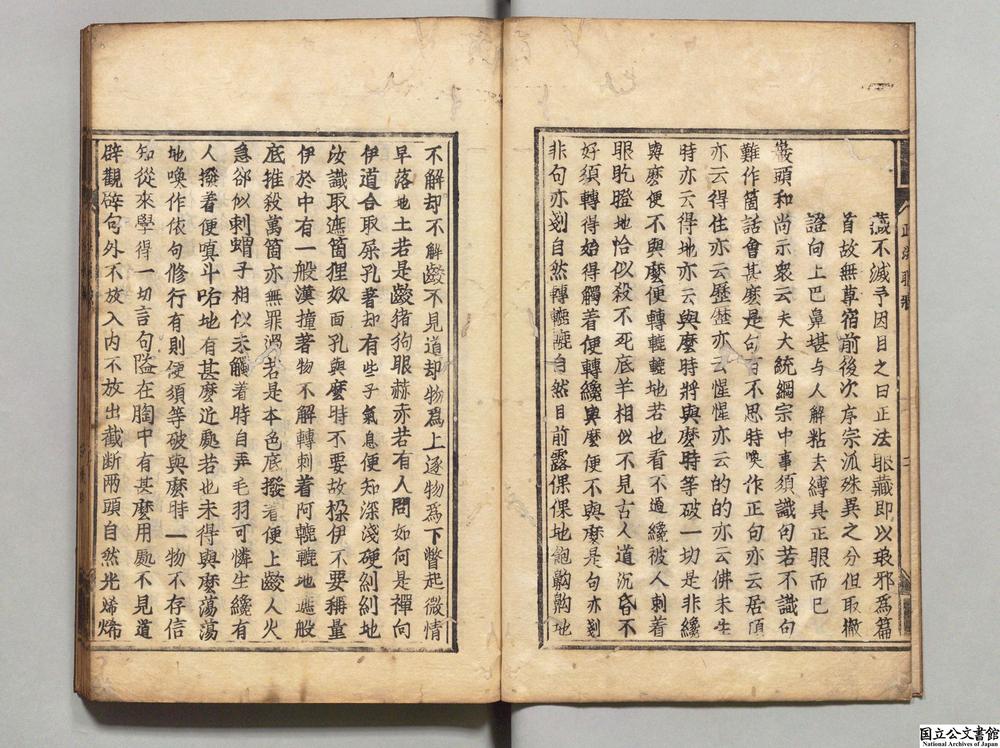 藏不滅予因目之曰正法眼藏即以琅邪爲篇
首故無尊宿前後次序宗派殊異之分但取徹
證向上巴鼻堪与人解粘去縛具正眼而已
巖頭和尚示衆云夫大統綱宗中事須識句若不識句
難作箇話會甚麽是句百不思時喚作正句亦云居頂
亦云得住亦云歷歷亦云惺惺亦云的的亦云佛未生
時亦云得地亦云與麽時將與麽時等破一切是非纔
與麽便不與麽便轉轆轆地若也看不過纔被人刺着
眼盵瞪地恰似殺不死底羊相似不見古人道沉昏不
好須轉得始得觸着便轉纔與麽便不與麽是句亦剗
非句亦剗自然轉轆轆自然目前露倮倮地飽齁齁地
不解却不解齩不見道却物爲上逐物爲下瞥起微情
早落地上若是齩猪狗眼赫赤若有人問如何是禪向
伊道合取屎孔著却有些子氣息便知深淺硬糾糾地
汝識取遮箇狸奴面孔與麽時不要故垜伊不要稱量
伊於中有一般漢撞著物不解轉刺着阿轆轆地遮般
底椎殺萬箇亦無罪過若是本色底撥着便上齩人火
急郤似刺蝟子相似未觸着時自弄毛羽可憐生纔有
人撥着便嗔斗㖃地有甚麽近處若也未得與麽蕩蕩
地喚作依句修行有則便須等破與麽時一物不存信
知從來學得一切言句隘在胸中有甚麽用處不見道
辟觀辟句外不放入内不放出截斷兩頭自然光烯烯
国立公文書館
National Archives of Japan